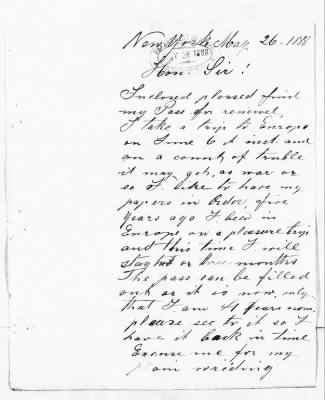 New York May 26. 1888
Y 28 1888
Hon. Sir!
Inclosed pleased find
my Pass for renewel,
I take a trip to Europe
on June 6 it inst. and
on a count of truble
it may get, as war or
so I like to have my
papers in Order, five
Years ago I been in
Europe on a pleasure trip
and this time I will
stay or three months
The pass can be filled
out as it is now, only
that I am 41 Years now.
please see to it so I
have it back in time
Excuse me for my
wriding